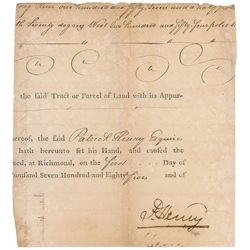 one hundred and fifty seven and a half
seventy deg West two hundred and fifty four poles to
the said Tract or Parcel of Land with its Appur-
ereof, the said Patrick Henry Esquire
hath hereunto set his Hand, and caused the
ed, at Richmond, on the first Day of
housand Seven Hundred and Eighty and of
P. Henry